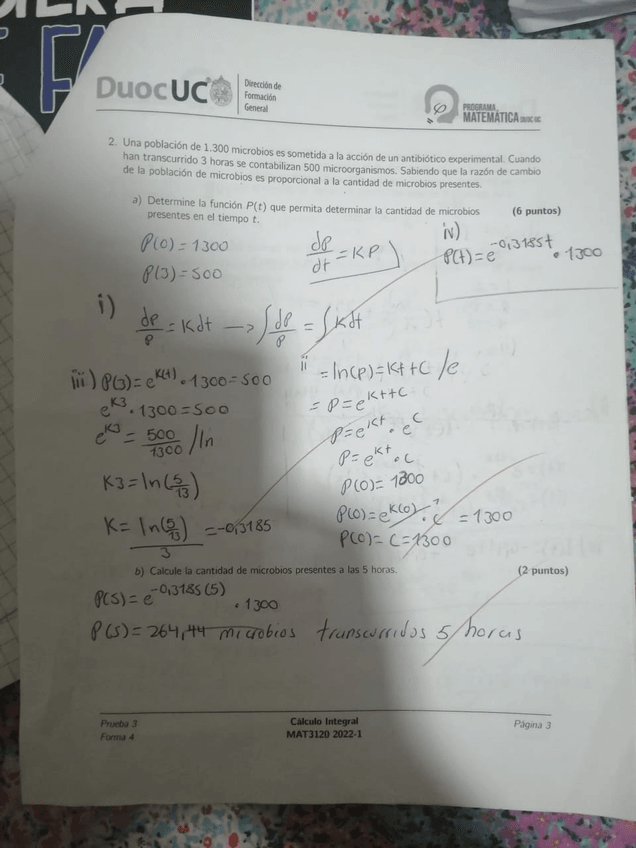 DuocUC
Dirección de
Formación
General
PROGRAMA
MATEMÁTICA DUOC UC
2. Una población de 1.300 microbios es sometida a la acción de un antibiótico experimental. Cuando
han transcurrido 3 horas se contabilizan 500 microorganismos. Sabiendo que la razón de cambio
de la población de microbios es proporcional a la cantidad de microbios presentes.
a) Determine la función P(t) que permita determinar la cantidad de microbios (6 puntos)
presentes en el tiempo t.
P(0) = 1300
P(3) = 500
dp/dt = KP
iv)
P(t) = e^-0,3185t • 1300
i)
dp/p = Kdt —> ∫dp/p = ∫Kdt
ii = ln(p) = Kt + C /e
= P = e^Kt+C
P = e^Kt • e^C
P = e^Kt • C
P(0) = 1300
P(0) = e^K(0) • C = 1300
P(0) = C = 1300
iii) P(3) = e^K(t) • 1300 = 500
e^K3 • 1300 = 500
e^K3 = 500/1300 /ln
K3 = ln(5/13)
K = ln(5/13)/3 = -0,3185
b) Calcule la cantidad de microbios presentes a las 5 horas. (2 puntos)
P(5) = e^-0,3185(5) • 1300
P(5) = 264,44 microbios transcurridos 5 horas
Prueba 3
Forma 4
Cálculo Integral
MAT3120 2022-1
Página 3